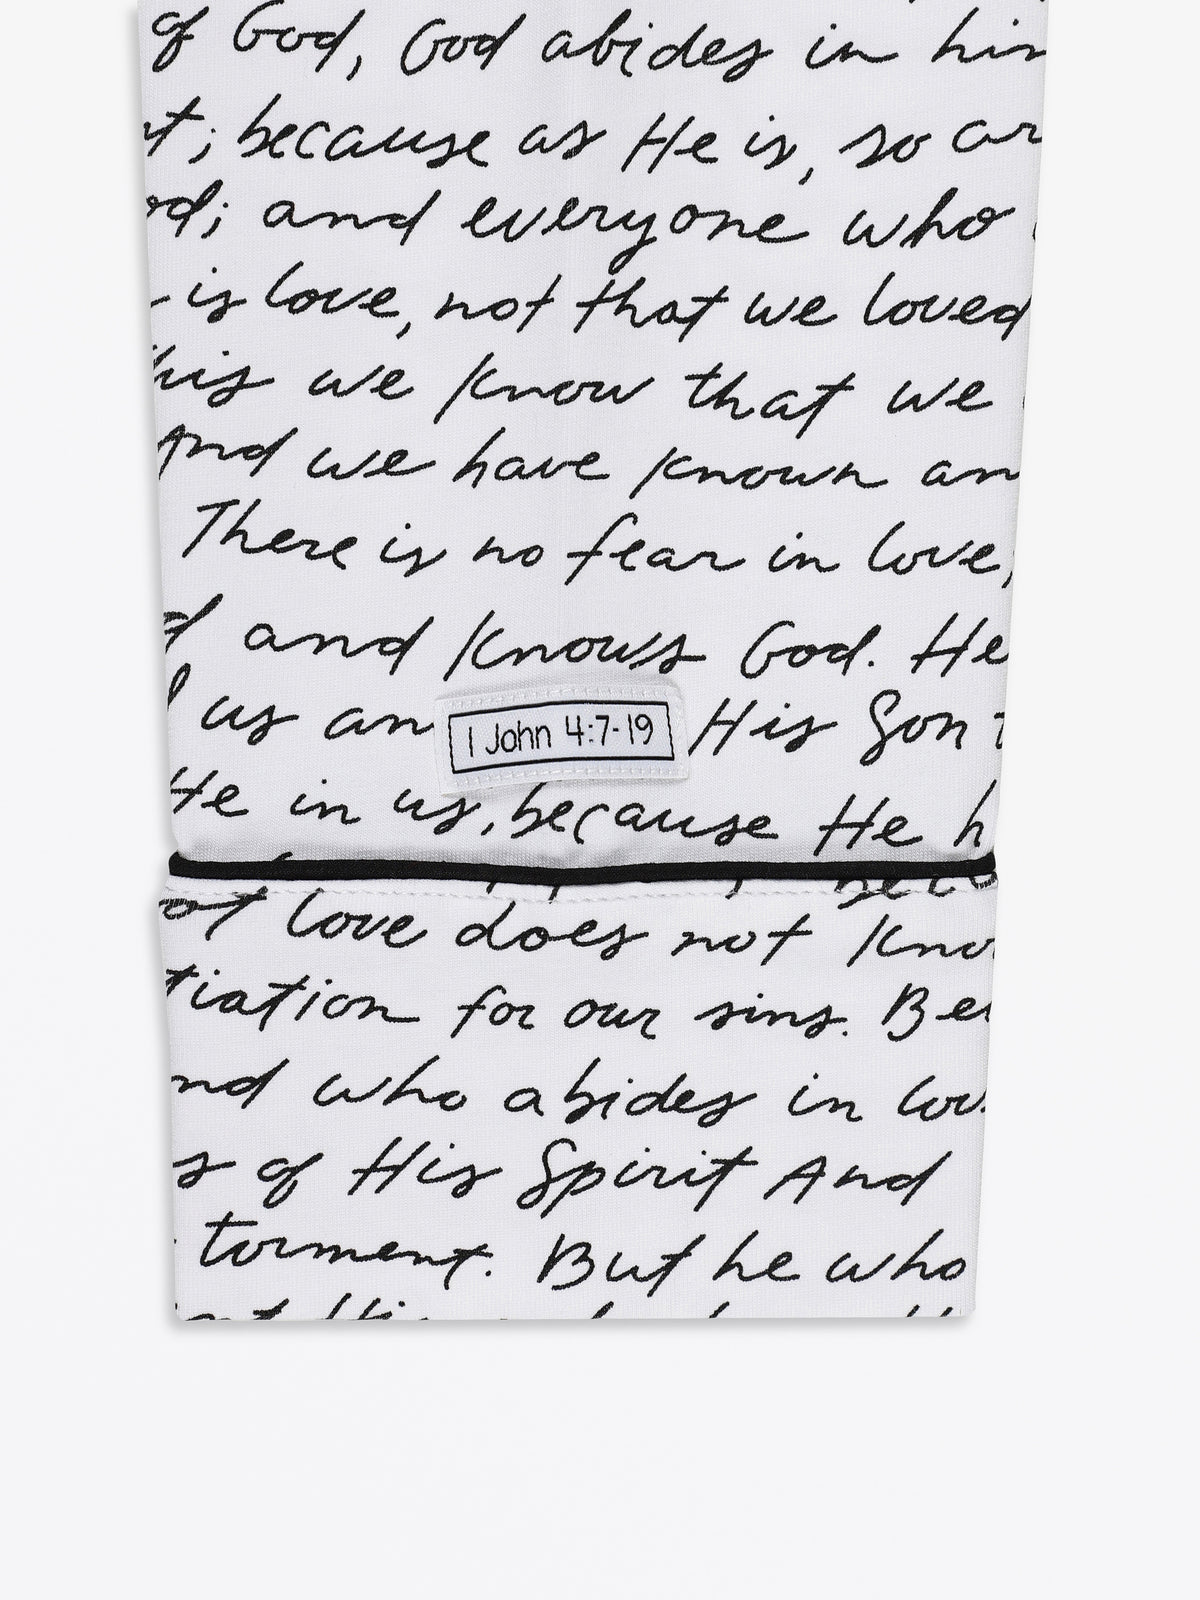 of God, God abides in him
; because as He is, so
; and everyone who
is love, not that we loved
we know that we
And we have known
There is no fear in love,
and knows God. He
us His Son
1 John 4:7-19
He in us, because He
love does not
for our sins.
who abides in
of His Spirit And
torment. But he who